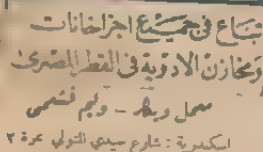 تباع فى جميع اجزاخانات
ومخازن الادويه فى القطر المصرى
معمل
اسكندرية : شارع سيدي المتولي نمرة ٢